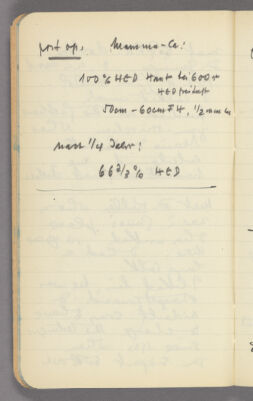 post op. Mamma-Ca:
100% HED Haut bei 600 r
HED freiluft
50cm - 60cm F H, 1/2 mm Cu
nach 1/4 Jahr:
66 2/3 % HED